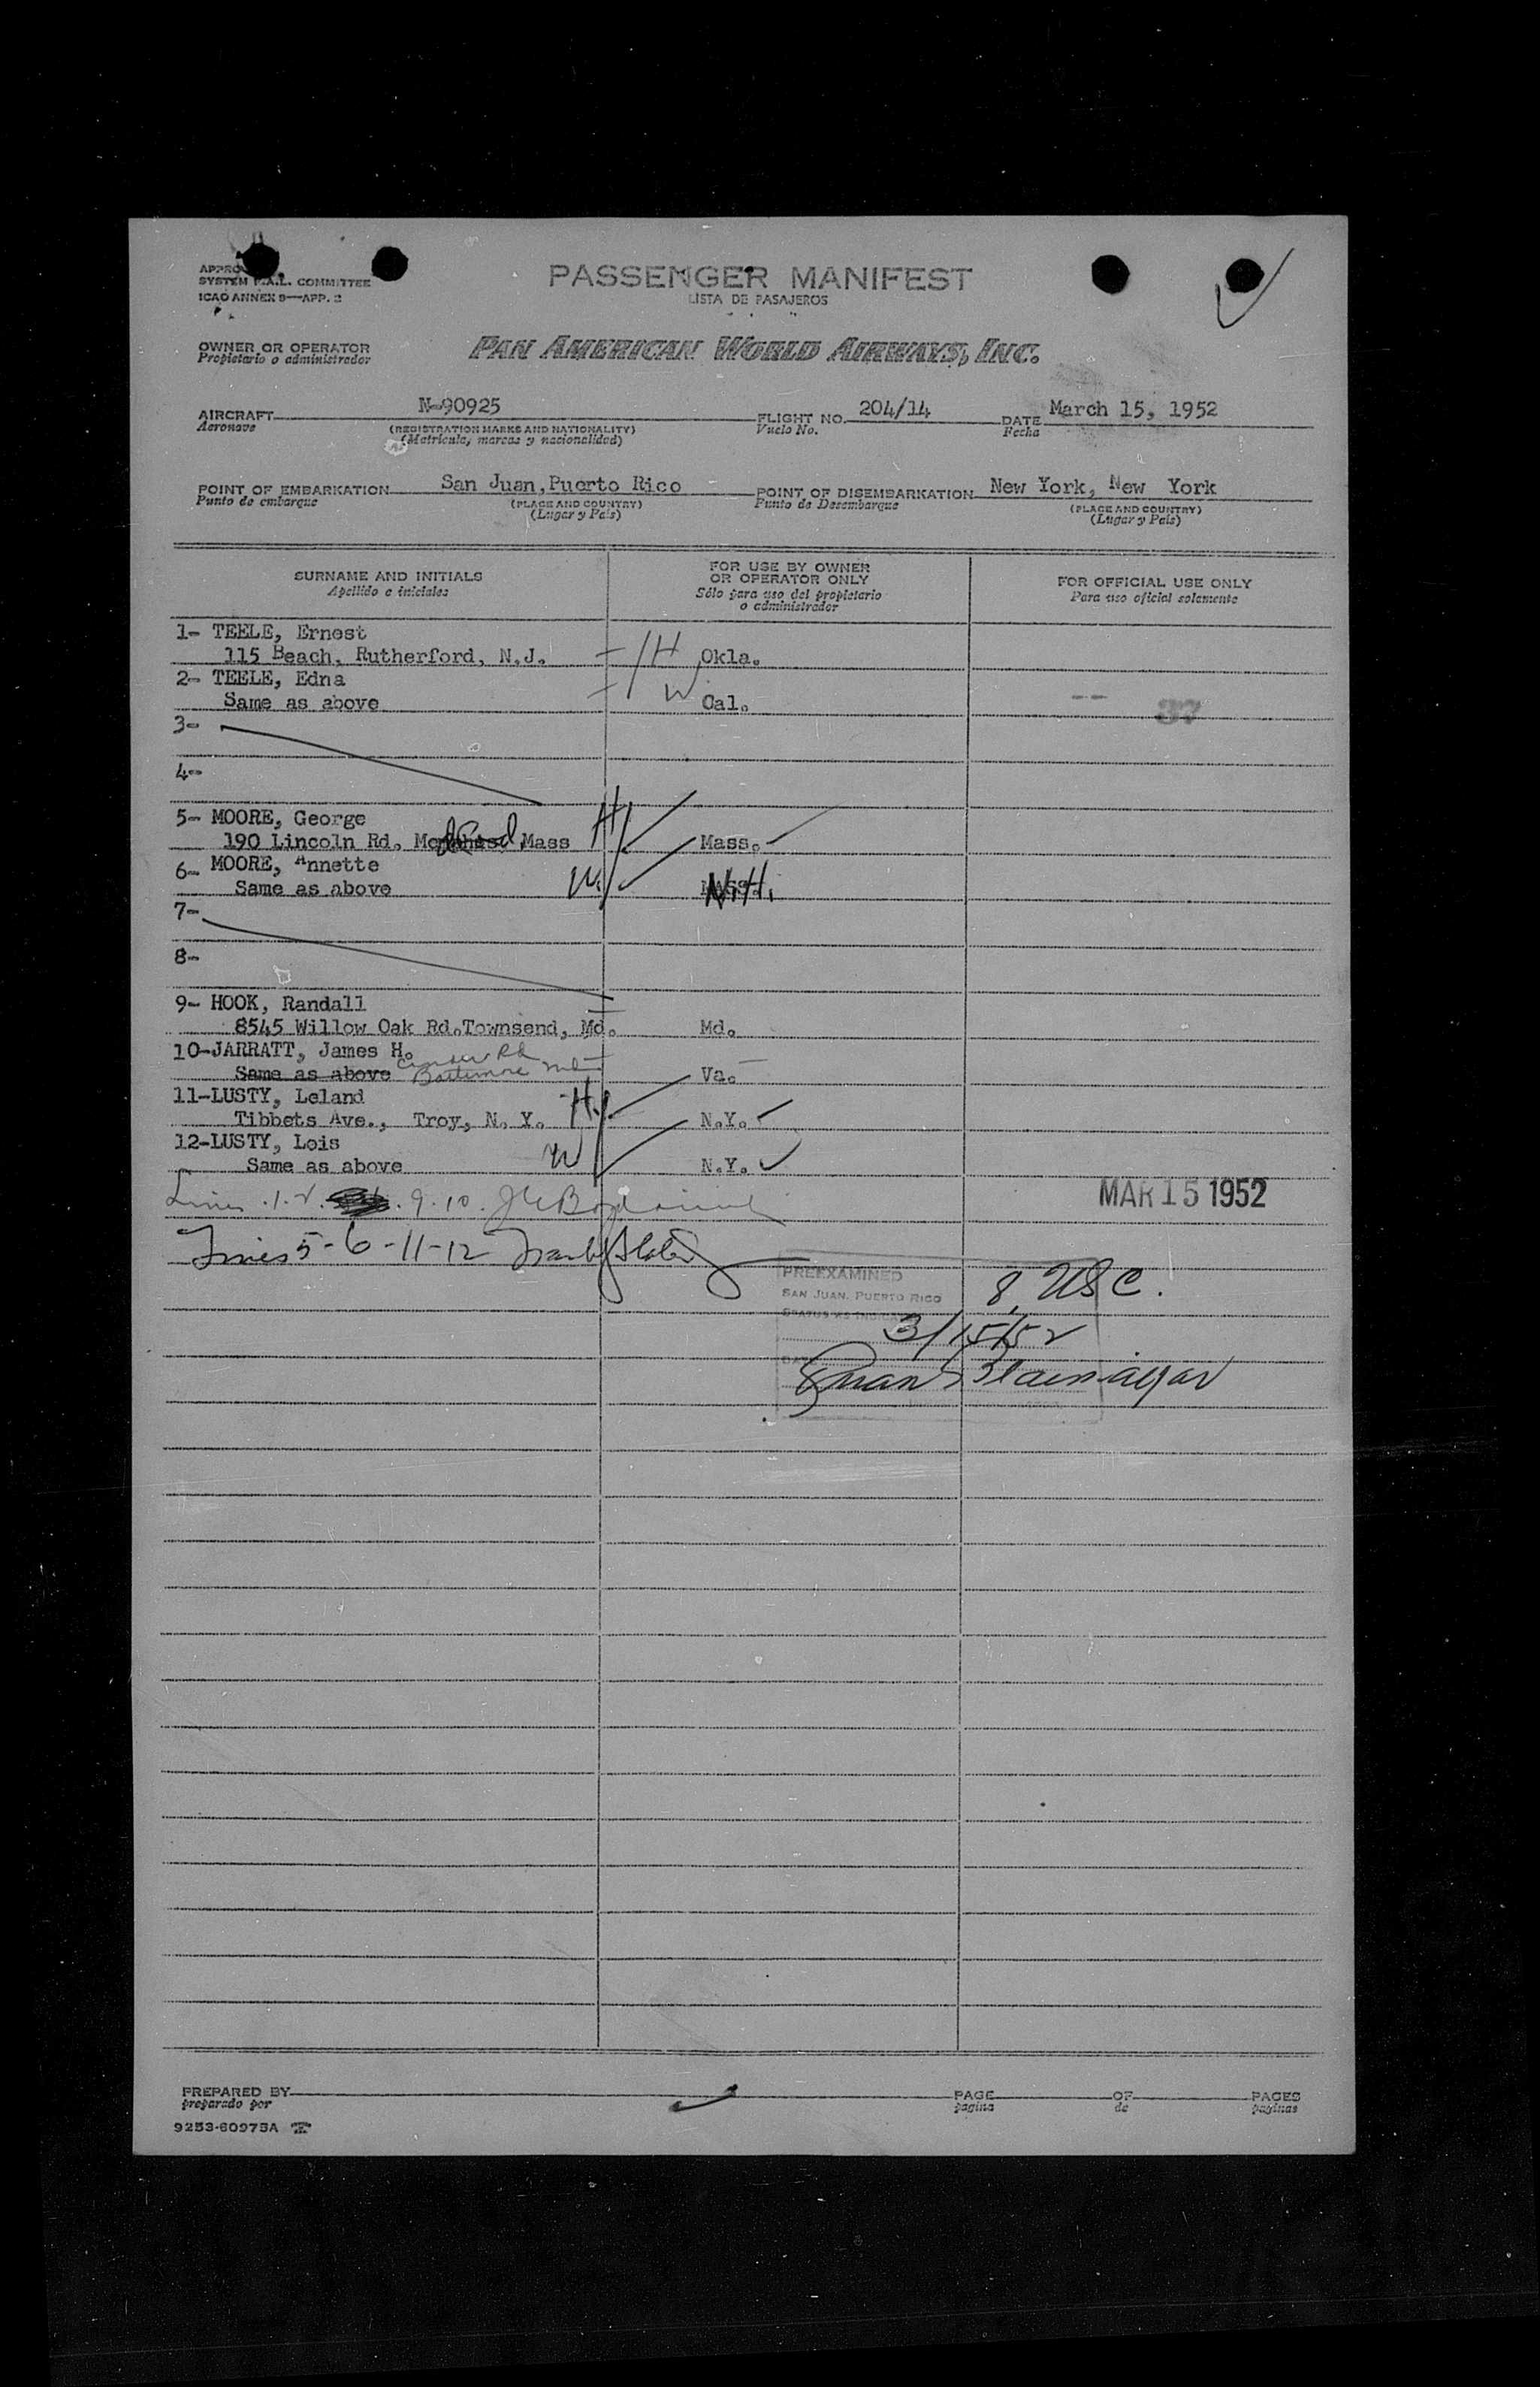 PASSENGER MANIFEST
LISTA DE PASAJEROS
SYSTEM F.A.L. COMMITTEE
ICAO ANNEX 9—APP. 2
OWNER OR OPERATOR
Propietario o administrador
PAN AMERICAN WORLD AIRWAYS, INC.
AIRCRAFT N-90925 FLIGHT NO. 204/14 DATE March 15, 1952
Aeronave (REGISTRATION MARKS AND NATIONALITY) Vuelo No. Fecha
(Matricula, marcas y nacionalidad)
POINT OF EMBARKATION San Juan, Puerto Rico POINT OF DISEMBARKATION New York, New York
Punto de embarque (PLACE AND COUNTRY) Punto de Desembarque (PLACE AND COUNTRY)
(Lugar y País) (Lugar y País)
SURNAME AND INITIALS
Apellido e iniciales
FOR USE BY OWNER
OR OPERATOR ONLY
Sólo para uso del propietario
o administrador
FOR OFFICIAL USE ONLY
Para uso oficial solamente
1- TEELE, Ernest
115 Beach, Rutherford, N.J. H Okla.
2- TEELE, Edna
Same as above W Cal. 37
3-
4-
5- MOORE, George H
190 Lincoln Rd. Medford Mass Mass.
6- MOORE, Annette
Same as above W. N.H.
7-
8-
9- HOOK, Randall
8545 Willow Oak Rd. Townsend, Md. Md.
10-JARRATT, James H.
Same as above Rd Baltimore Md Va.
11-LUSTY, Leland H.
Tibbets Ave., Troy, N. Y. N.Y.
12-LUSTY, Lois W
Same as above N.Y.
Lines 1. 2. 9. 10.
MAR 15 1952
Lines 5-6-11-12
PREEXAMINED
SAN JUAN, PUERTO RICO
STATUS AS INDICATED
8 USC.
3/15/52
PREPARED BY PAGE OF PAGES
preparado por pagina de paginas
9253-60975A